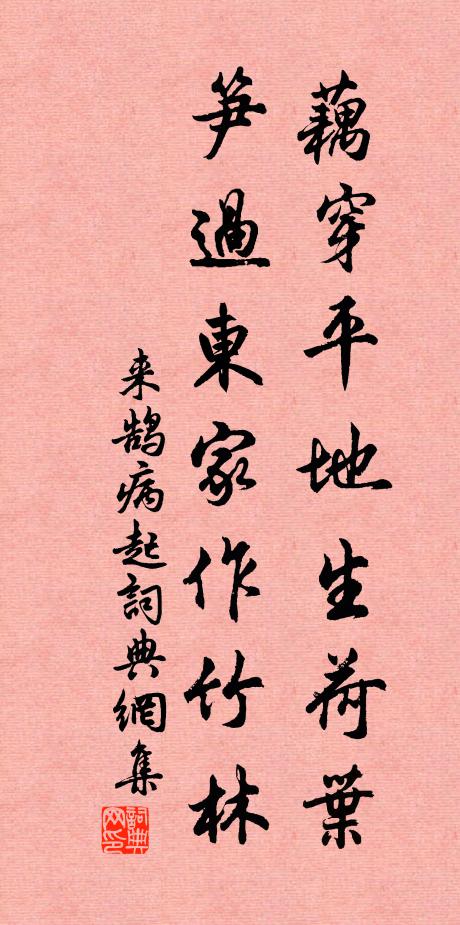 藕穿平地生荷葉
笋過東家作竹林
来鵠病起詞典網集
詞典
网印